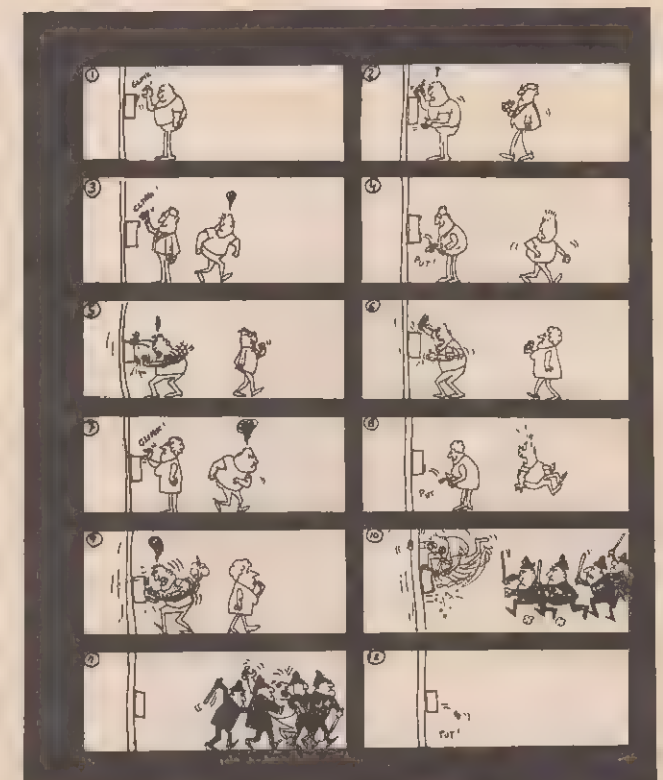 1
CLINK!
2
3
CLINK!
4
PUT!
5
6
7
CLINK!
8
PUT
9
10
11
12
PUT!